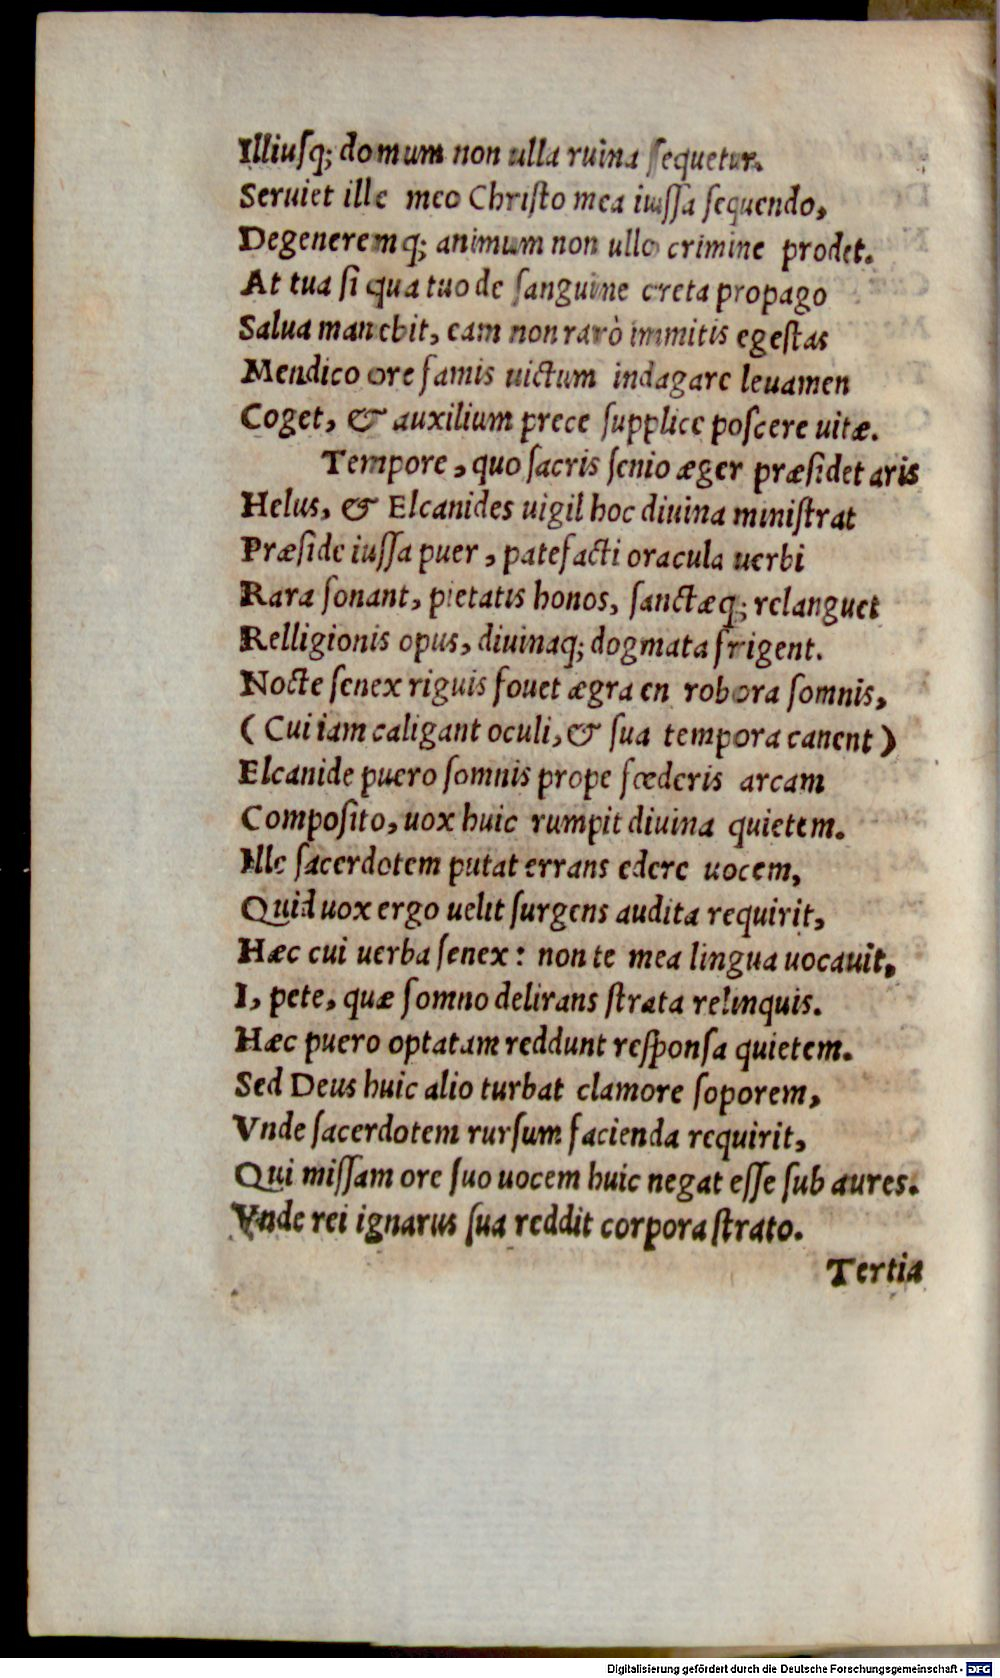 Illiusq; domum non ulla ruina ſequetur.
Seruiet ille meo Chriſto mea iuſſa ſequendo,
Degeneremq; animum non ullo crimine prodet.
At tua ſi qua tuo de ſanguine creta propago
Salua manebit, eam non rarò immitis egeſtas
Mendico ore famis uictum indagare leuamen
Coget, & auxilium prece ſupplice poſcere uitæ.
Tempore, quo ſacris ſenio æger præſidet aris
Helus, & Elcanides uigil hoc diuina miniſtrat
Præſide iuſſa puer, patefacti oracula uerbi
Rara ſonant, pietatis honos, ſanctæq; relanguet
Relligionis opus, diuinaq; dogmata frigent.
Nocte ſenex riguis fouet ægra en robora ſomnis,
(Cui iam caligant oculi, & ſua tempora canent)
Elcanide puero ſomnis prope fœderis arcam
Compoſito, uox huic rumpit diuina quietem.
Ille ſacerdotem putat errans edere uocem,
Quid uox ergo uelit ſurgens audita requirit,
Hæc cui uerba ſenex: non te mea lingua uocauit,
I, pete, quæ ſomno delirans ſtrata relinquis.
Hæc puero optatam reddunt reſponſa quietem.
Sed Deus huic alio turbat clamore ſoporem,
Vnde ſacerdotem rurſum facienda requirit,
Qui miſſam ore ſuo uocem huic negat eſſe ſub aures.
Vnde rei ignarus ſua reddit corpora ſtrato.
Tertia
Digitalisierung gefördert durch die Deutsche Forschungsgemeinschaft - DFG